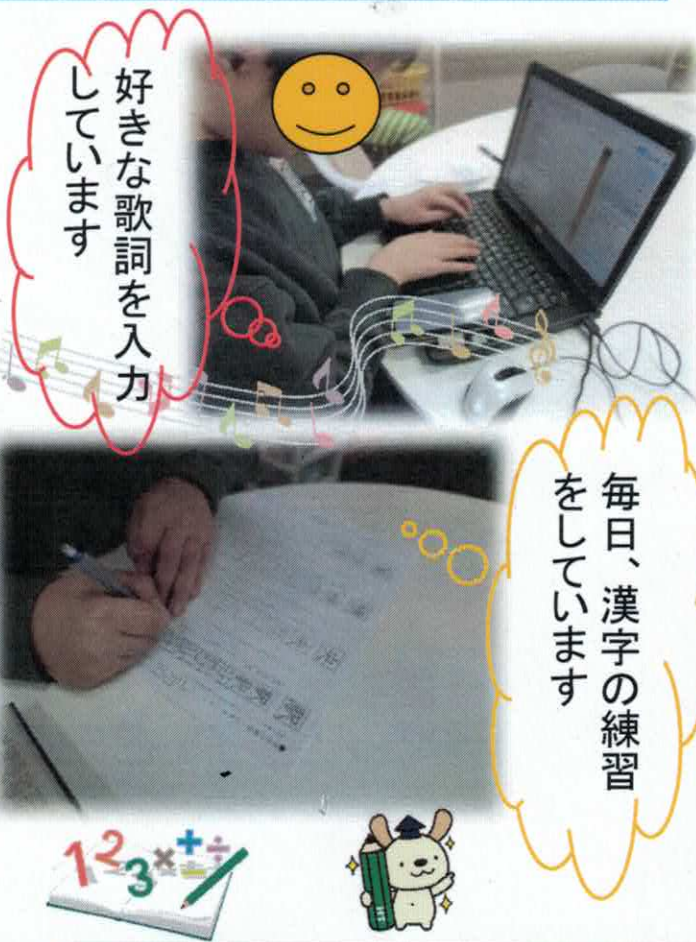 好きな歌詞を入力
しています
毎日、漢字の練習
をしています
123×+÷=